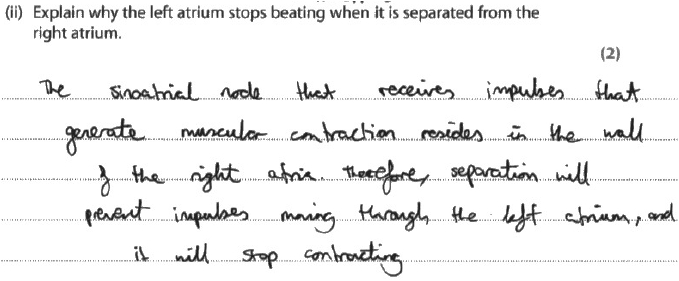 (ii) Explain why the left atrium stops beating when it is separated from the
right atrium.
(2)
The sinoatrial node that receives impulses that
generate muscular contraction resides in the wall
of the right atria. therefore, separation will
prevent impulses moving through the left atrium, and
it will stop contracting